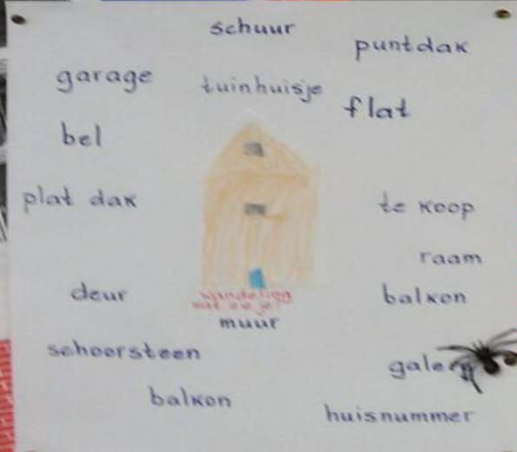 schuur
puntdak
garage
tuinhuisje
flat
bel
plat dak
te koop
raam
deur
wandeling
wat zie je?
balkon
muur
schoorsteen
balkon
huisnummer